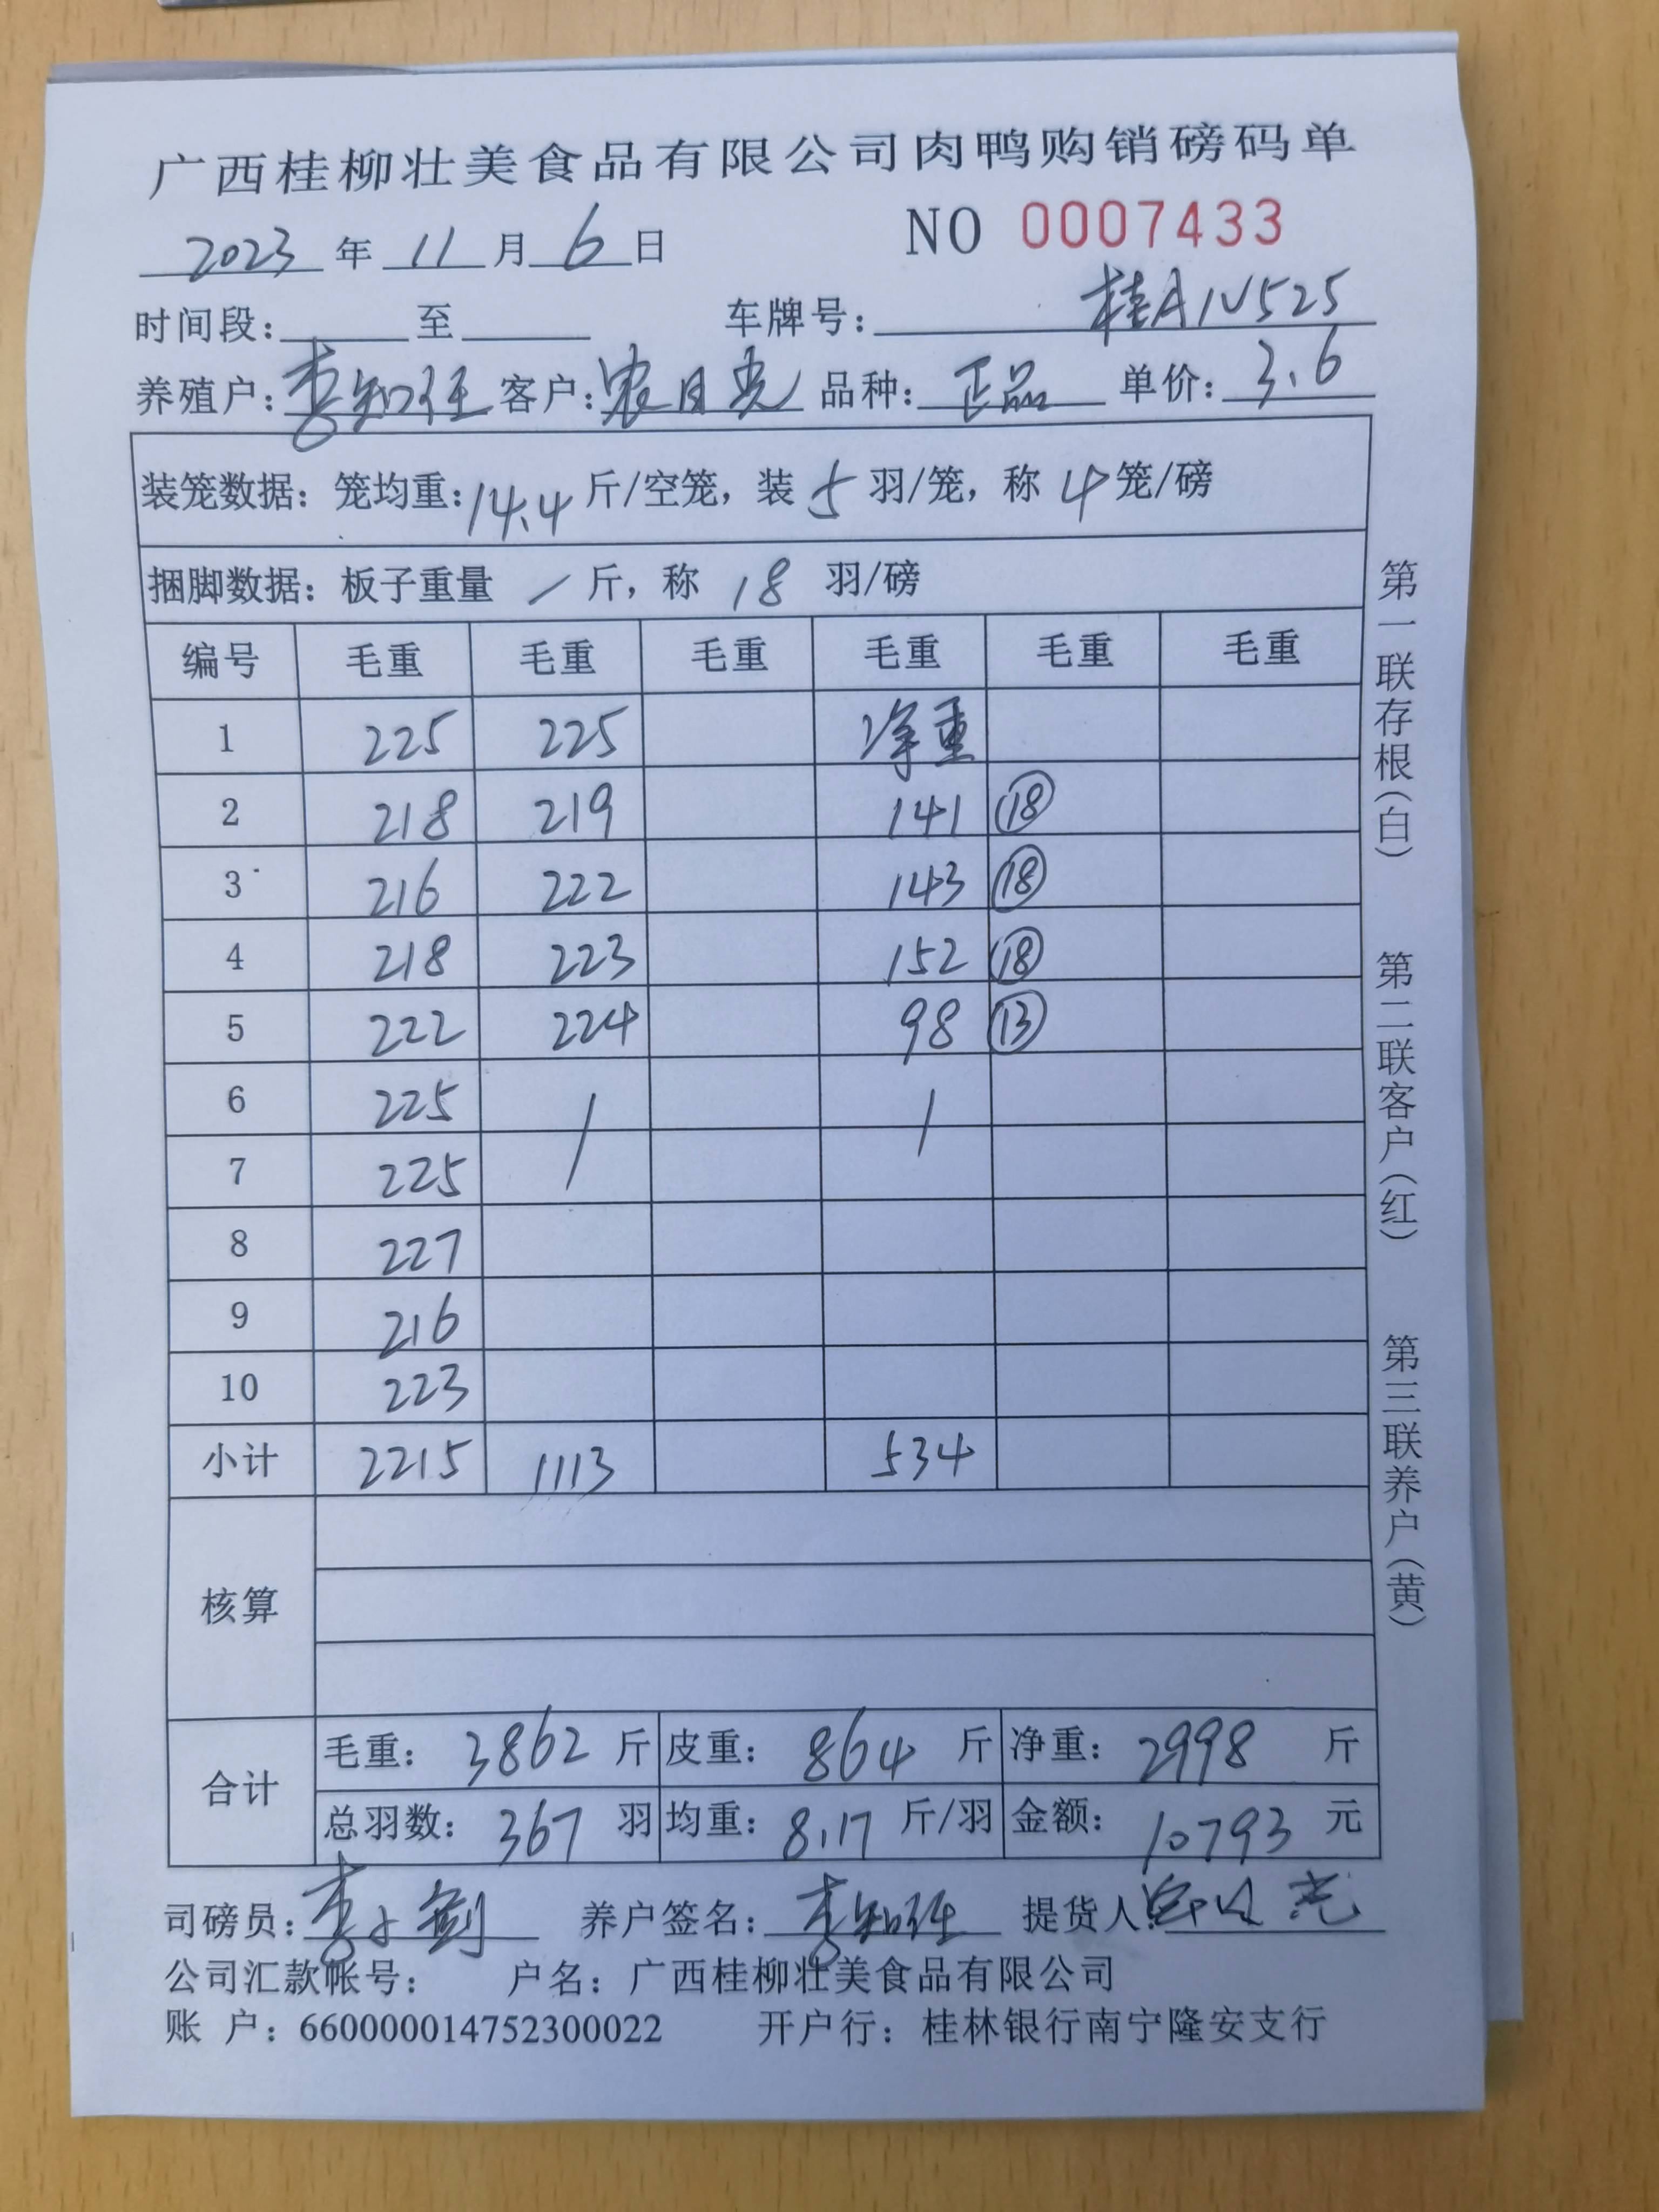 广西桂柳壮美食品有限公司肉鸭购销磅码单
2023年11月6日 NO 0007433
时间段:至 车牌号:桂A1V525
养殖户:李知任 客户:农日光 品种:正品 单价:3.6
装笼数据:笼均重:14.4斤/空笼,装5羽/笼,称4笼/磅
捆脚数据:板子重量/斤,称18羽/磅
编号 毛重 毛重 毛重 毛重 毛重 毛重
1 225 225 净重
2 218 219 141 ⑱
3 216 222 143 ⑱
4 218 223 152 ⑱
5 222 224 98 ⑬
6 225 / /
7 225
8 227
9 216
10 223
小计 2215 1113 534
核算
合计 毛重:3862斤 皮重:864斤 净重:2998斤
总羽数:367羽 均重:8.17斤/羽 金额:10793元
司磅员:李 剑 养户签名:李知任 提货人:光
公司汇款帐号: 户名:广西桂柳壮美食品有限公司
账 户:660000014752300022 开户行:桂林银行南宁隆安支行
第一联存根(白)
第二联客户(红)
第三联养户(黄)